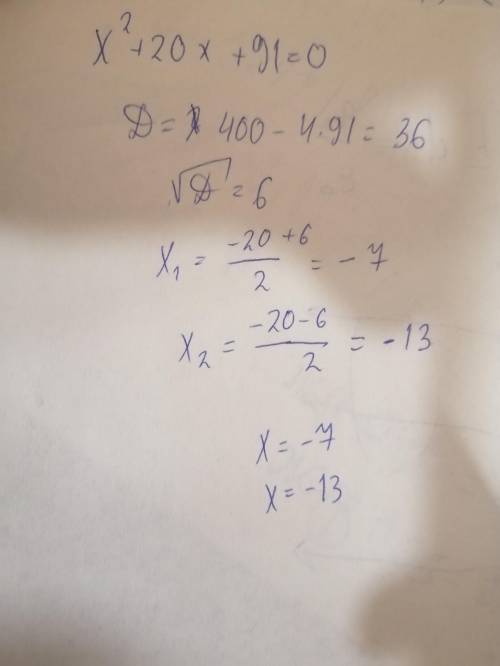 x²+20x+91=0
D= 400-4·91= 36
√D = 6
x₁ = (-20+6)/2 = -7
x₂ = (-20-6)/2 = -13
x=-7
x=-13